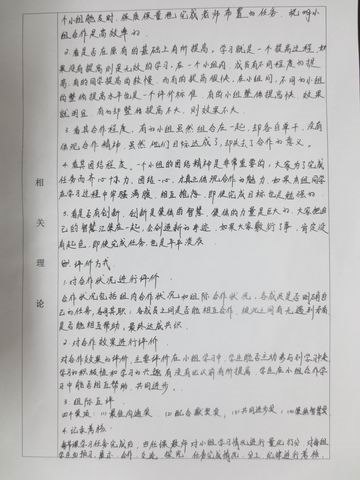 个小组能及时、保质保量地完成老师布置的任务，说明小
组合作是高效率的。
2.看是否在原有的基础上有所提高，学习就是一个提高过程，如
果没有提高则是无效的学习。在一个小组内，成员有不同程度的提
高，有的同学提高的较慢，而有的提高很快。在小组间，不同的小组
的整体提高水平也是一个评价标准，有的小组整体提高快，效果
就明显，有的却整体提高不大，则效果不大。
3.看其合作程度，有的小组虽然组合在一起，却各自单干，没有
体现合作精神，虽然他们目标达成了，却失去了合作的意义。
4.看其团结程度。一个小组的团结精神是非常重要的，大家为了完成
任务而齐心协力、团结一心，才真正体现合作的魅力，如果在组同学
在学习过程中牢骚满腹、相互推诿，即使完成目标也是勉强的。
5.看是否有创新，创新是集体的智慧，集体的力量是巨大的，大家把自
己的智慧汇集在一起，会创造新的奇迹，如果大家敷衍了事，肯定没
有起色，即使完成任务也是平平淡淡。
相关理论
评价方式
1.对合作状况进行评价
合作状况包括组内合作状况和组际合作状况，各成员是否明确自
己的任务，各司其职，各成员之间是否能相互合作，彼此之间有无遇到
是否能相互帮助，最终达成共识。
2.对合作效果进行评价
对合作效果的评价，主要评价在小组学习中，学生能否主动参与到学习中
学习的积极性和学习的兴趣有没有比以前有所提高，学生在小组合作学
习中能否相互帮助、共同进步。
3.组际互评
四个奖项：(1)最佳沟通奖 (2)配合默契奖 (3)共同进步奖 (4)集体智慧奖
4.记录考核
每节课学习任务完成后，由任课教师对小组学习情况进行量化打分，对每组
学生的预习、展示、合作、交流、任务完成情况、分工、纪律进行考核，